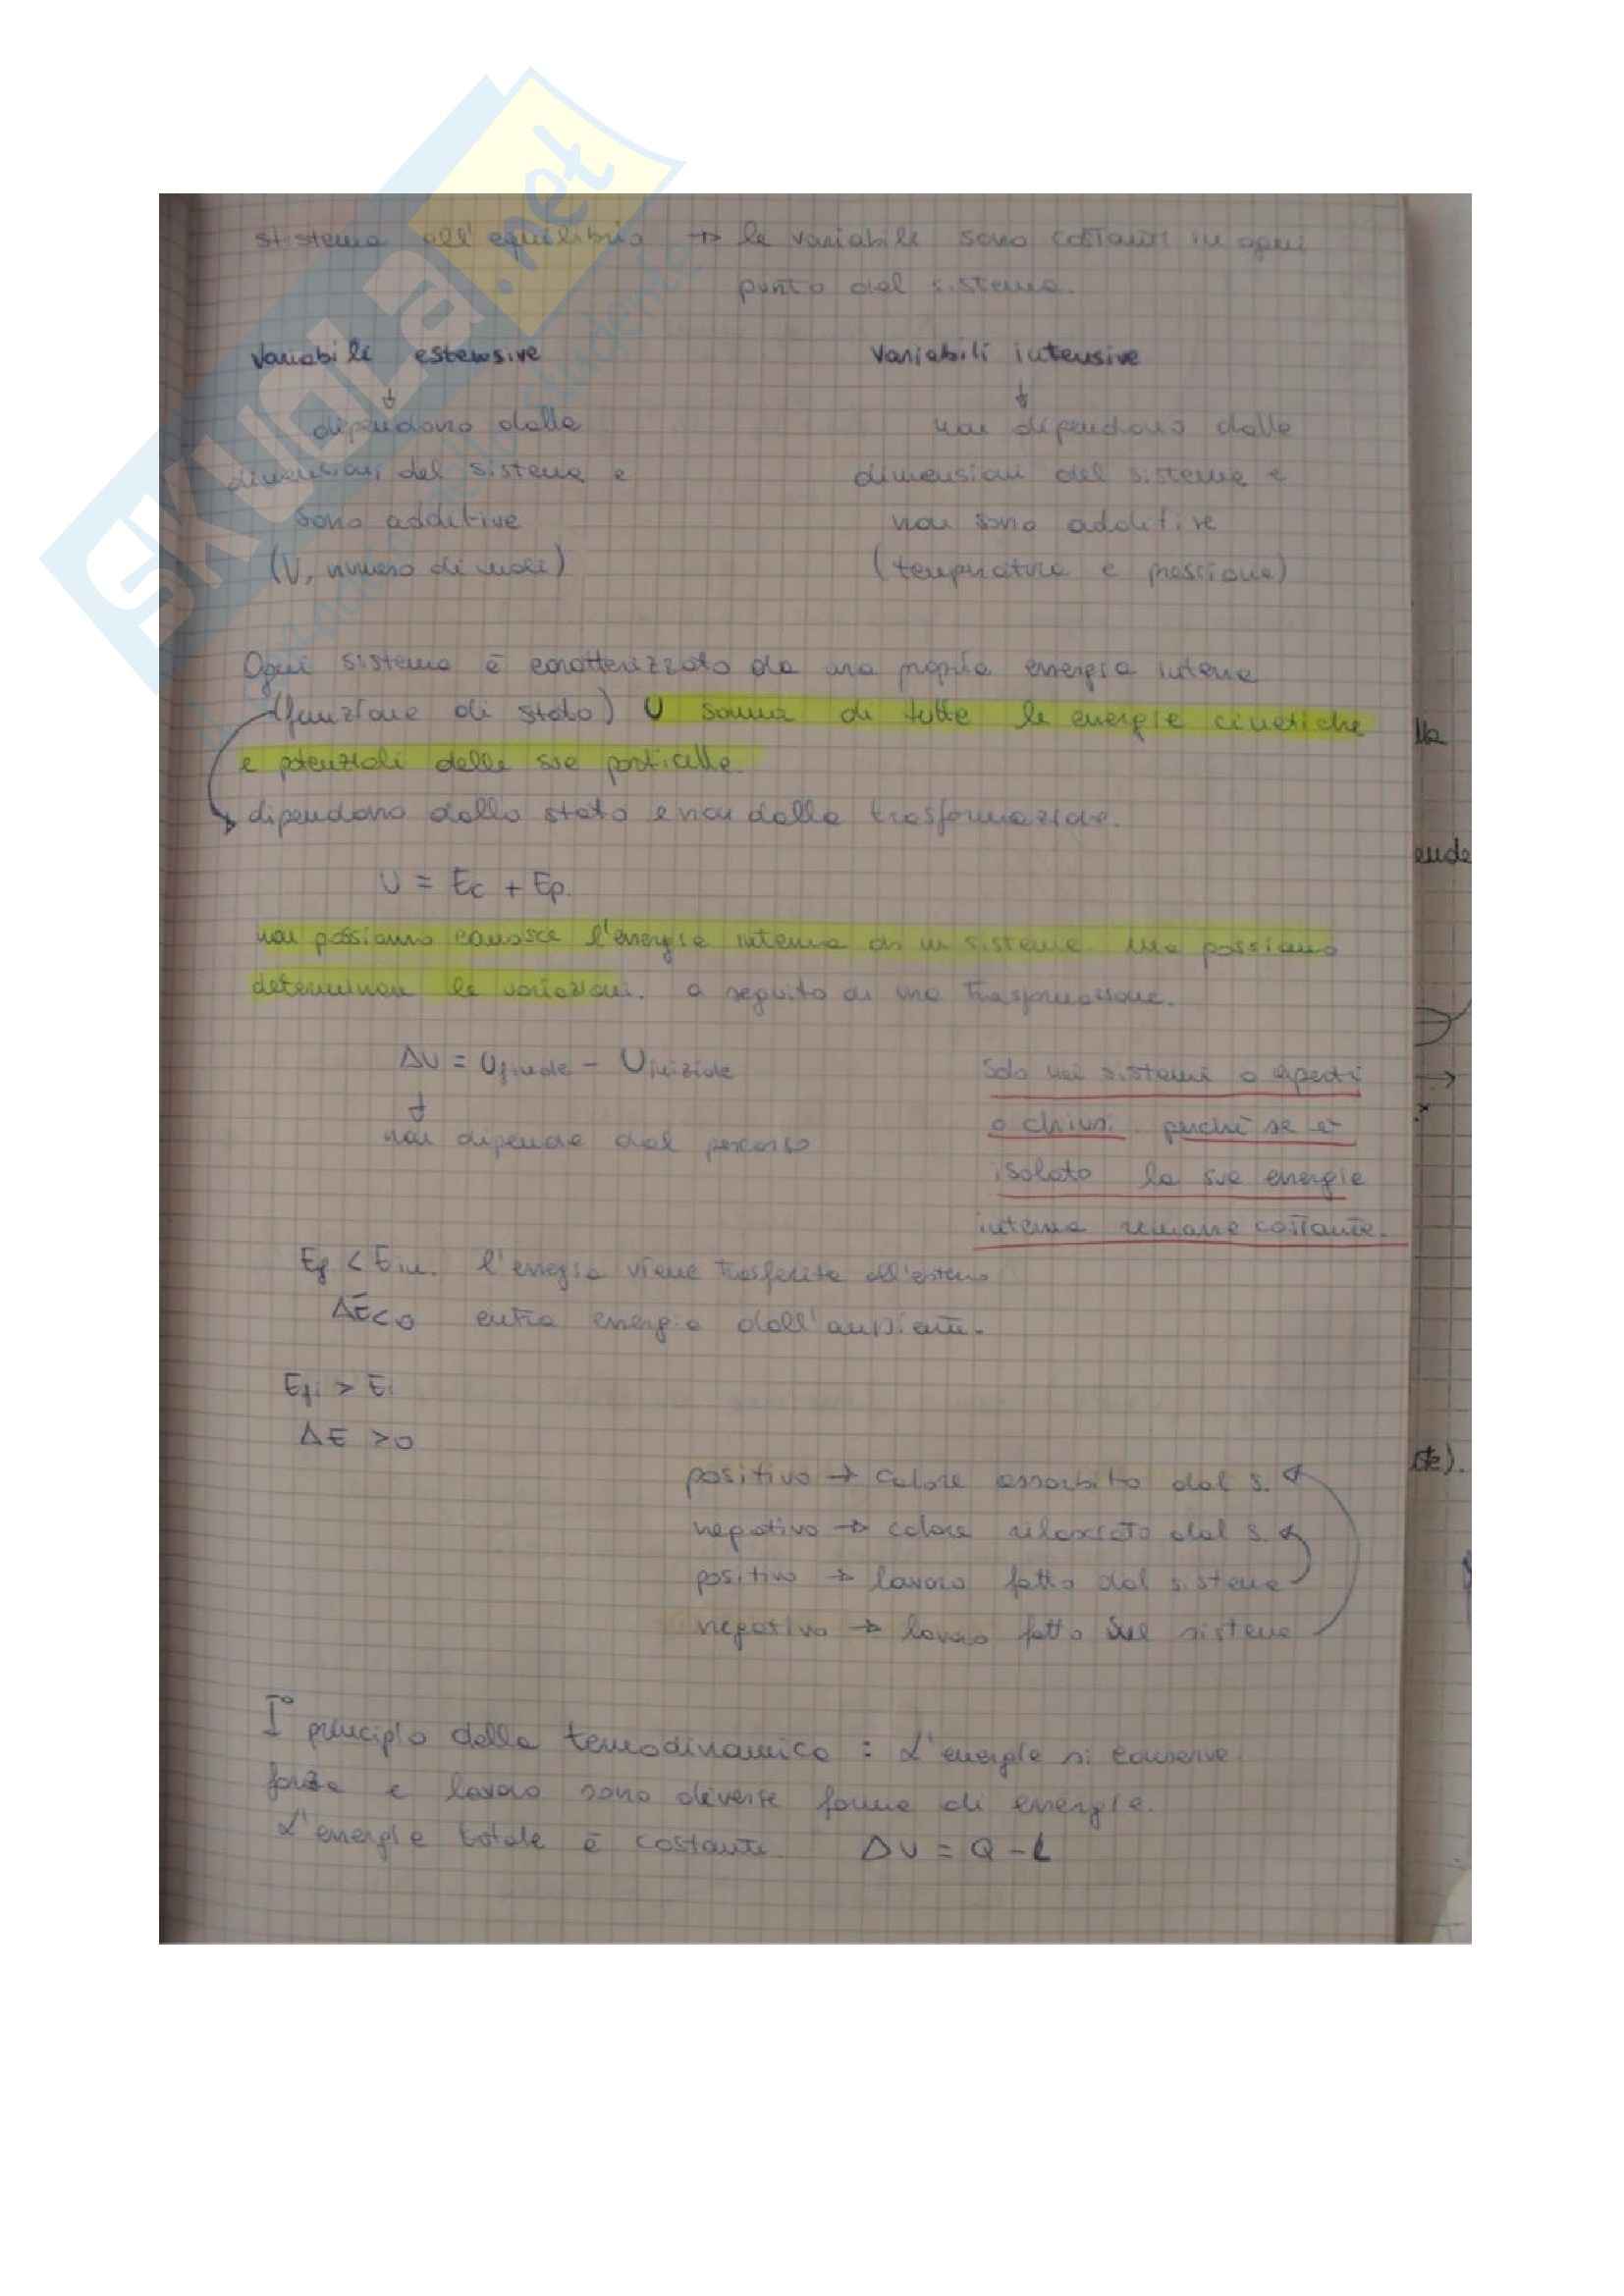 sistema all'equilibrio → le variabili sono costanti in ogni
punto del sistema.
Variabili estensive
Variabili intensive
↓
↓
dipendono dalle
non dipendono dalle
dimensioni del sistema e
dimensioni del sistema e
sono additive
non sono additive
(V, numero di moli)
(temperatura e pressione)
Ogni sistema è caratterizzato da una propria energia interna
(funzione di stato) U somma di tutte le energie cinetiche
e potenziali delle sue particelle.
dipendono dallo stato e non dalla trasformazione.
U = Ec + Ep.
non possiamo conosce l'energia interna di un sistema ma possiamo
determinare le variazioni. a seguito di una trasformazione.
ΔU = Ufinale - Uiniziale
↓
non dipende dal percorso
Solo nei sistemi o aperti
o chiusi perché se è
isolato la sua energia
interna rimane costante.
Ef < Ein. l'energia viene trasferita all'esterno
ΔE<0 entra energia dall'ambiente.
Efi > Ei
ΔE >0
positivo → calore assorbito dal s.
negativo → calore rilasciato dal s.
positivo → lavoro fatto dal sistema
negativo → lavoro fatto sul sistema
I° principio della termodinamica : L'energia si conserva
forza e lavoro sono diverse forme di energia.
L'energia totale è costante. ΔU = Q - L
lla
ende
te).
SKUOLa.net